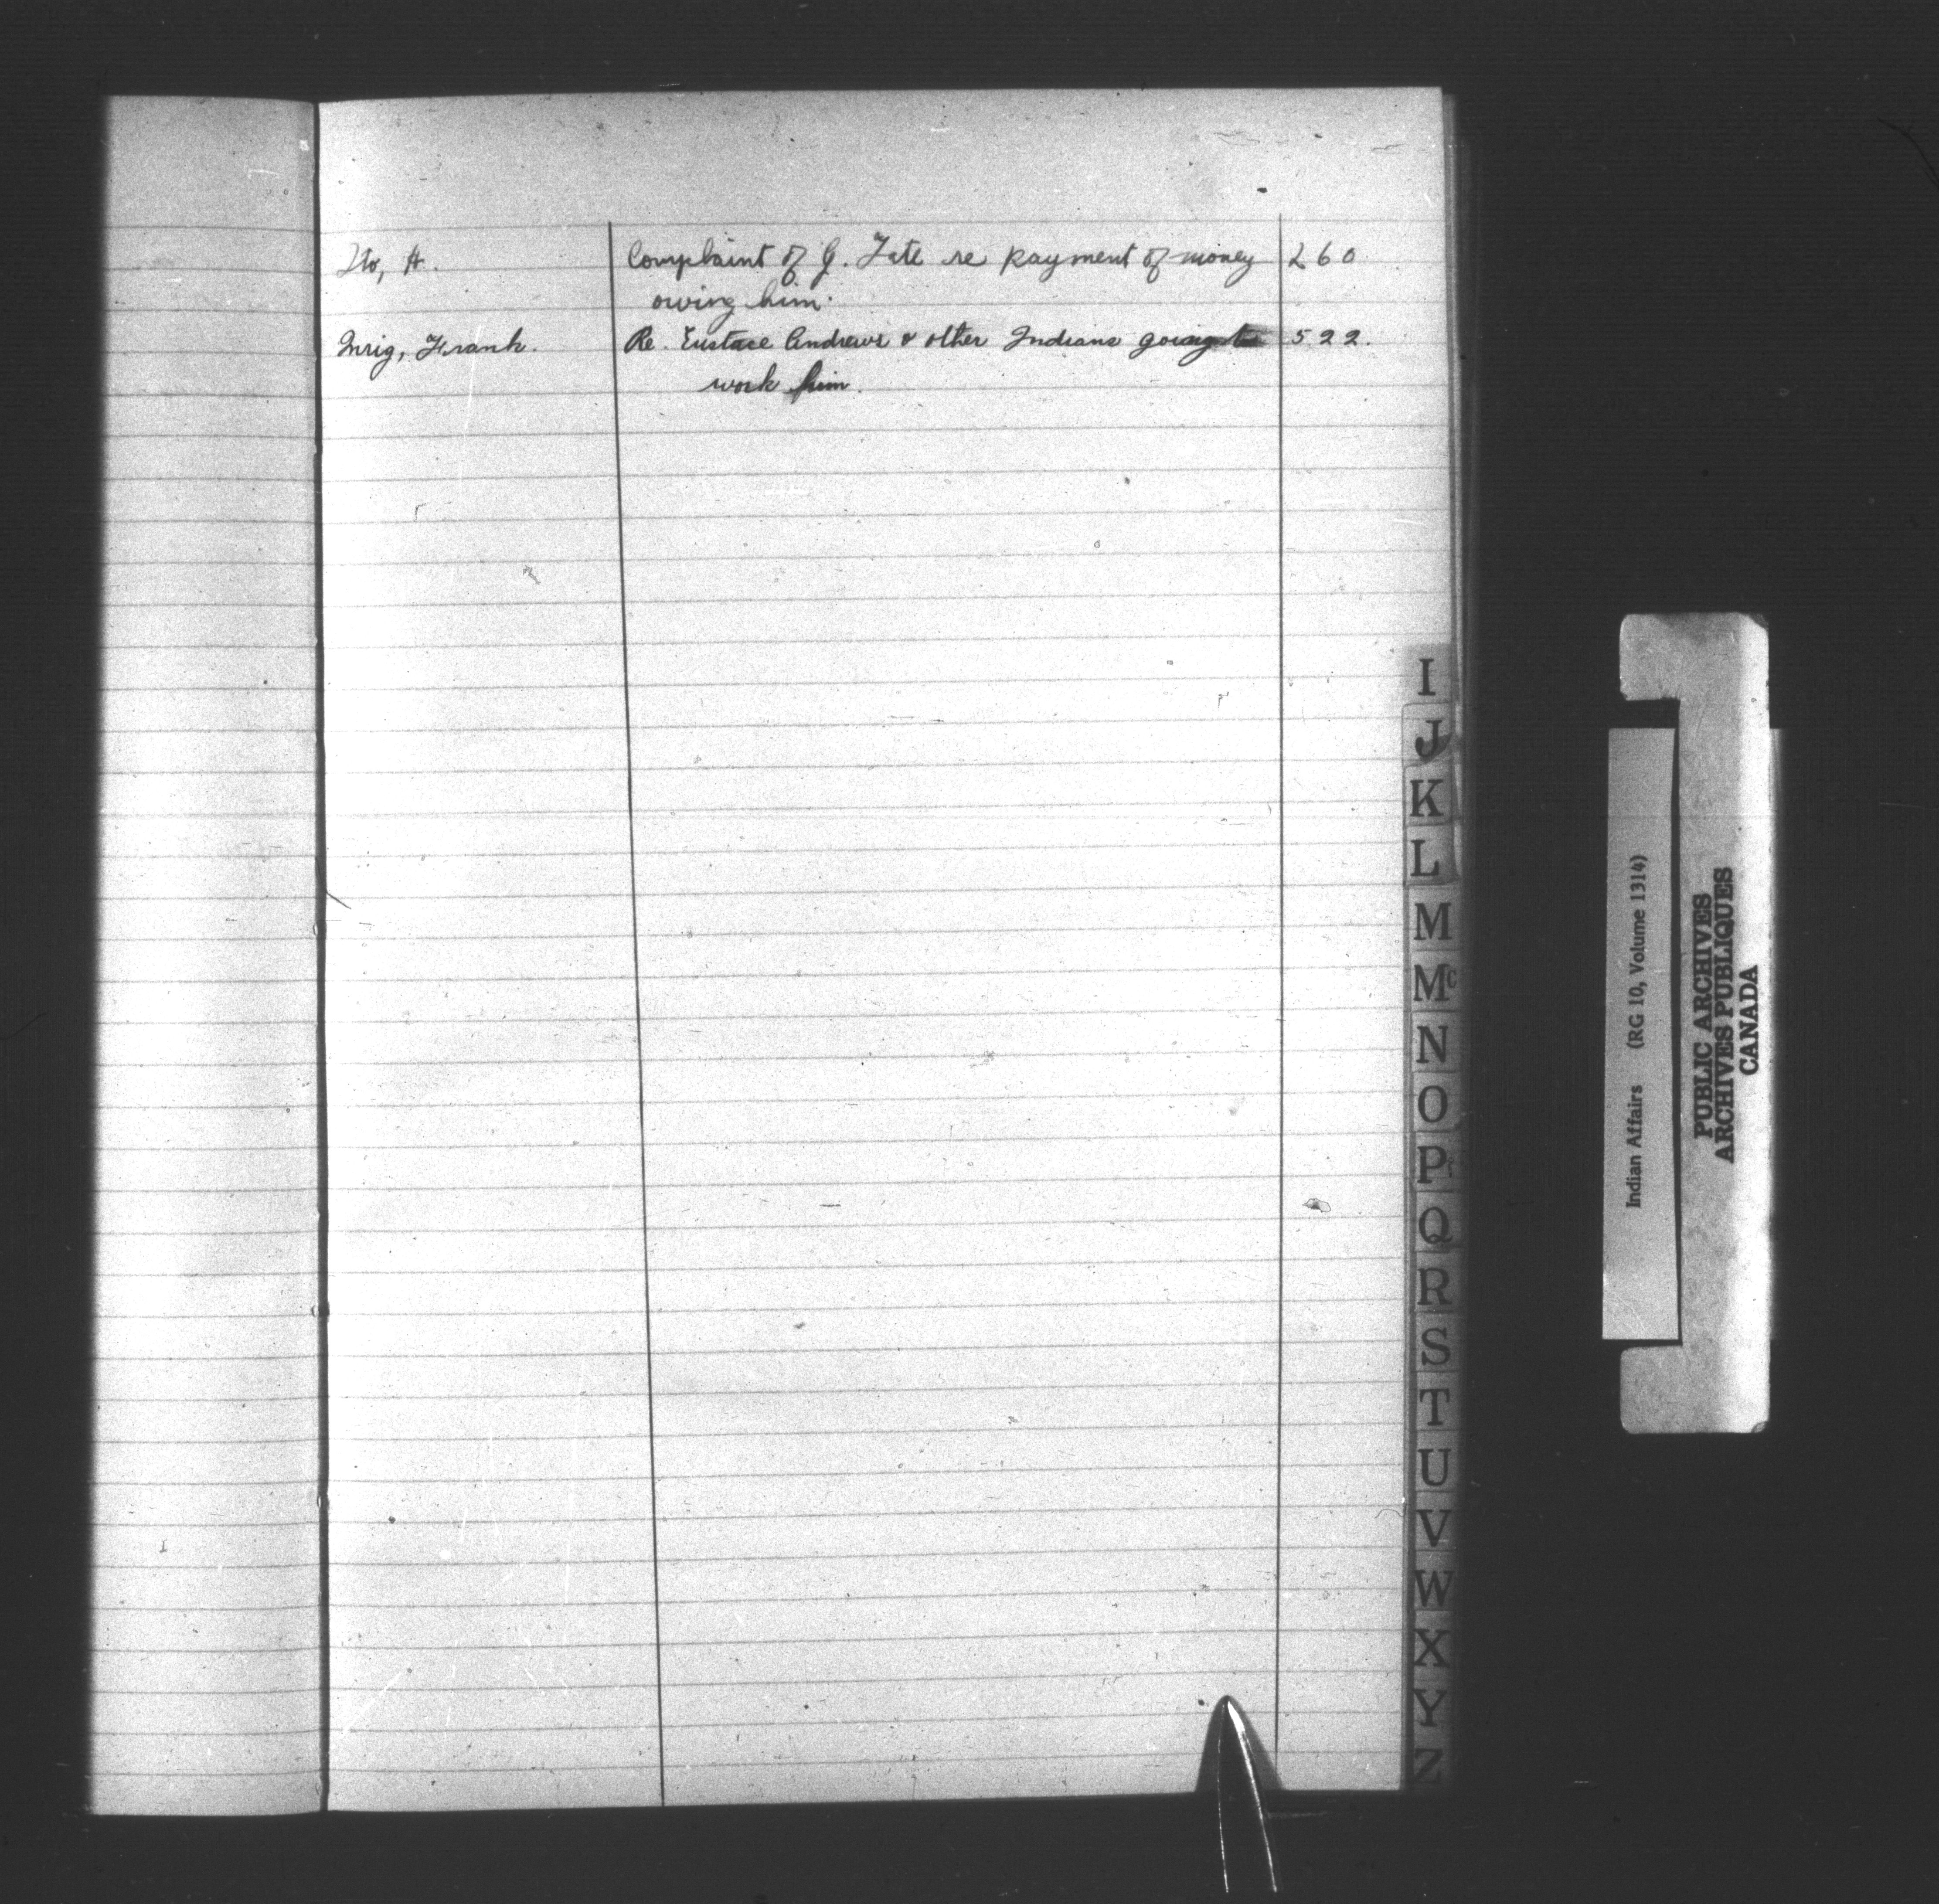 Ito, H. Complaint of G. Tate re payment of money 260
owing him.
Inrig, Frank. Re. Eustace Andrews & other Indians going to 522.
work him.
I
J
K
L
M
Mc
N
O
P
Q
R
S
T
U
V
W
X
Y
Z
Indian Affairs (RG 10, Volume 1314)
PUBLIC ARCHIVES
ARCHIVES PUBLIQUES
CANADA